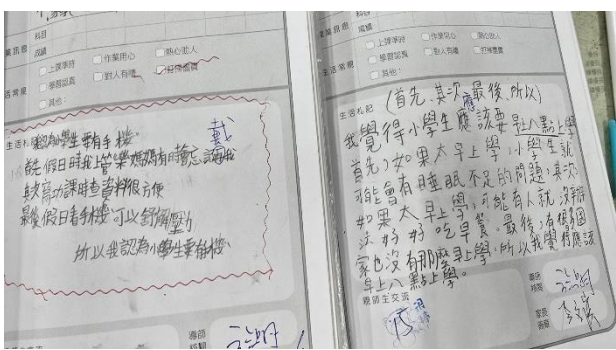 科目
成績
上課準時
作業用心
熱心助人
學習認真
對人有禮
打掃盡責
其他：
生活札記
我認為小學生要有手機
戴
首先假日時我上管樂媽媽有時會忘記接我
其次寫功課時查資料很方便
最後假日看手機可以舒解壓力
所以我認為小學生要有手機
導師
科目
成績
上課準時
作業用心
熱心助人
生活常規
學習認真
對人有禮
打掃盡責
其他：
生活札記
(首先、其次、最後、所以)
我覺得小學生應該要早上八點上學
首先，如果太早上學，小學生就
可能會有睡眠不足的問題，其次
如果太早上學，可能有人就沒辦
法好好吃早餐。最後，有很多國
家也沒有那麼早上學，所以我覺得應該
早上八點上學。
親師生交流
導師
家長
簽章